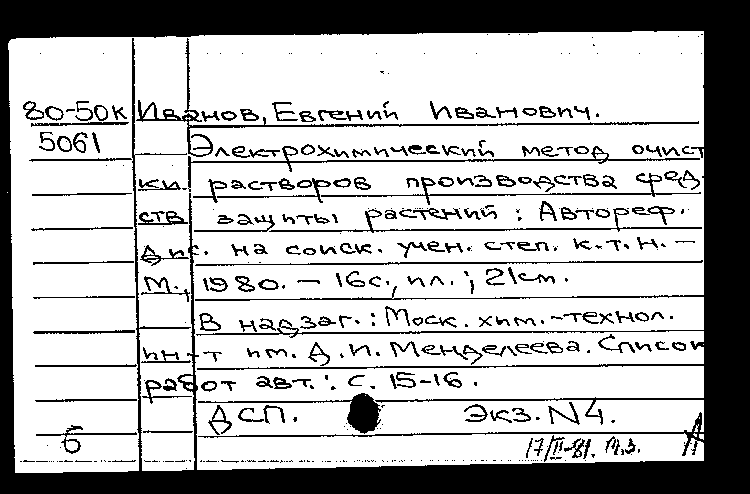 80-50к Иванов, Евгений Иванович.
5061 Электрохимический метод очист
ки растворов производства сред-
ств защиты растений : Автореф.
дис. на соиск. учен. степ. к.т.н. –
М., 1980. – 16с., ил. ; 21см.
В надзаг. : Моск. хим.-технол.
ин-т им. Д.И. Менделеева. Список
работ авт. : с. 15-16.
ДСП. Экз. N4.
6 17/II-81.